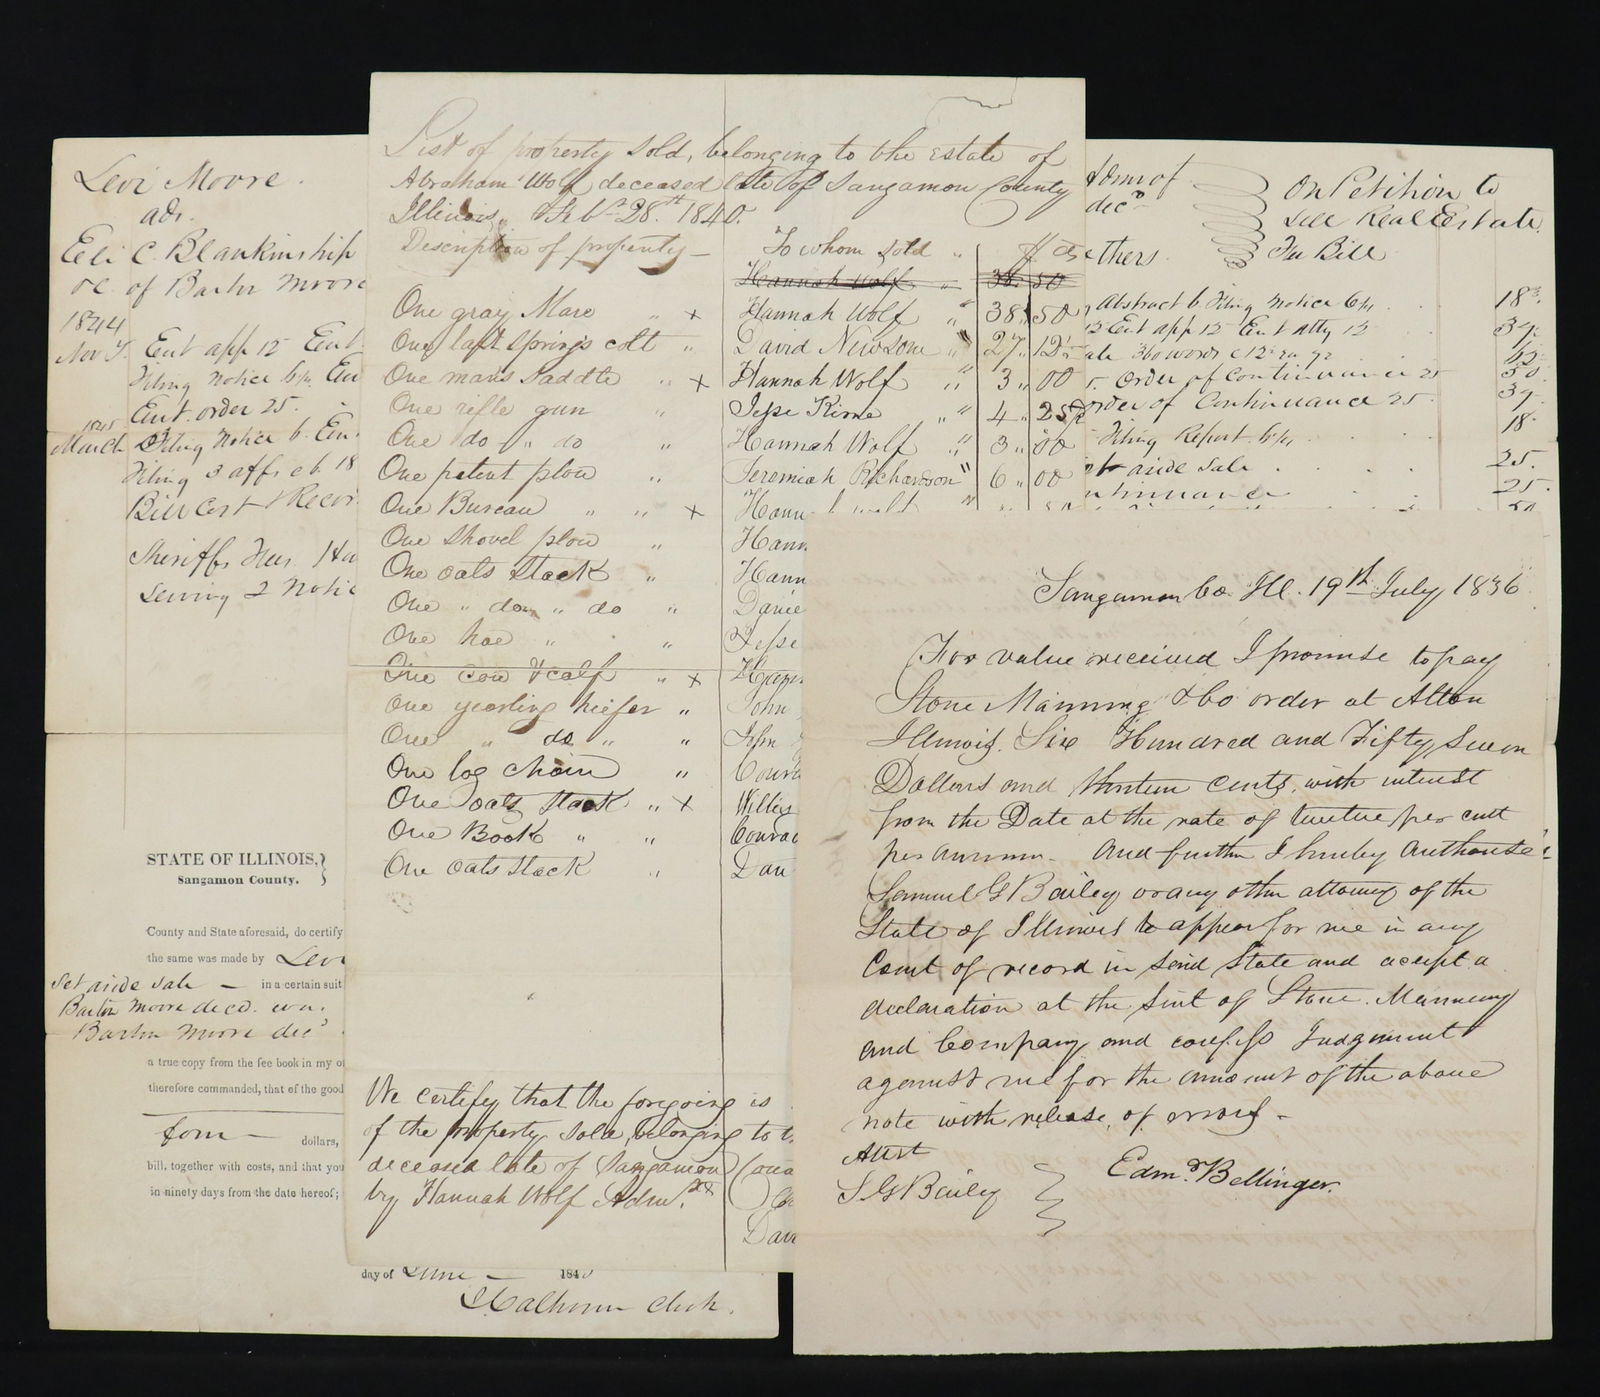 Levi Moore.
adr.
Eli C Blankinship
of Barton Moore
1844
Nov 7. Ent app 12 Ent
Filing Notice 6¼ En
Ent. order 25.
1845
March Filing Notice 6. En
Filing 3 affs
Bill Cost & Recor
Sheriffs Fees
Serving 2 Notic
STATE OF ILLINOIS,
Sangamon County.
County and State aforesaid, do certify
the same was made by Levi
set aside sale — in a certain suit
Barton Moore decd.
Barton Moore decd
a true copy from the fee book in my of
therefore commanded, that of the good
four — dollars,
bill, together with costs, and that you
in ninety days from the date hereof;
day of June — 184
Calhoun Clerk.
List of property sold, belonging to the estate of
Abraham Wolf deceased late of Sangamon County
Illinois, Feb. 28th 1840.
Description of property — To whom sold "
Hannah Wolf " 38. 50
One gray Mare " x Hannah Wolf " 38 " 50
One last Springs colt " David Newsom " 27 " 12½
One mans Saddle " x Hannah Wolf " 3 " 00
One rifle gun " Jesse Kime " 4 " 25
One do " do " Hannah Wolf " 3 " 00
One patent plow " Jeremiah Richardson " 6 " 00
One Bureau " " x Hann
One Shovel plow " Hann
One oats Stack " Hann
One " do " do " Danie
One hoe " " Jesse
One cow & calf " x Hann
One yearling heifer " John
One " do " " John
One log chain " Conra
One oats Stack " x Willis
One Book " " Conrad
One oats Stack " Dan
We certify that the foregoing is
of the property sold, belonging to t
deceased late of Sangamon Coun
by Hannah Wolf Adm.
Dan
Admr of
decd
thers
On Petition to
sell Real Estate
Fee Bill
Abstract 6. Filing Notice 6¼ 18¾
Ent app 12 Ent atty 12 37
360 words 62
Order of Continuance 25 50
order of Continuance 25. 37
Filing Report 6¼ 18
set aside sale 25.
ntinuance 25
Sangamon Co Ill. 19th July 1836
For value received I promise to pay
Stone Manning & Co order at Alton
Illinois. Six Hundred and Fifty Seven
Dollars and thirteen cents, with interest
from the Date at the rate of twelve per cent
per annum. And further I hereby Authorise
Samuel G Bailey or any other attorney of the
State of Illinois to appear for me in any
Court of record in said State and accept a
declaration at the suit of Stone. Manning
and Company and confess Judgment
against me for the amount of the above
note with release, of errors —
Attest
S G Bailey
Edmd. Bellinger.